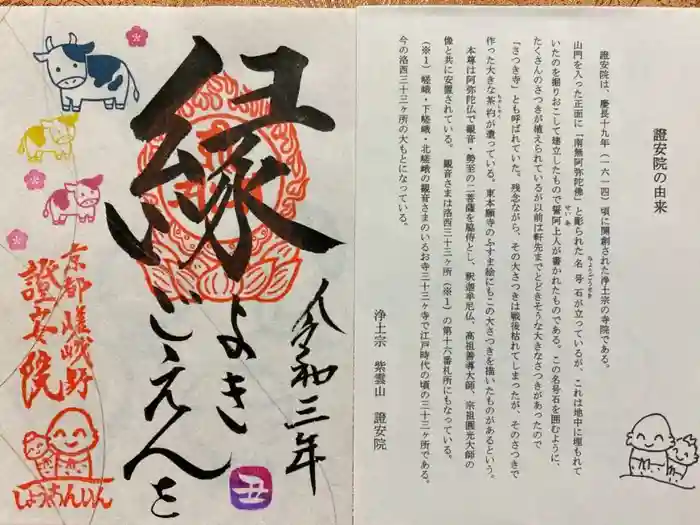 縁
よき
ごえんを
令和三年
丑
京都嵯峨野
證安院
しょうあんいん
證安院の由来
證安院は、慶長十九年(一六一四)頃に開創された浄土宗の寺院である。
山門を入った正面に「南無阿弥陀佛」と彫られた名号石が立っているが、これは地中に埋もれて
いたのを掘りおこして建立したもので誓阿上人が書かれたものである。この名号石を囲むように、
たくさんのさつきが植えられているが以前は軒先までとどきそうな大きなさつきがあったので
「さつき寺」とも呼ばれていた。残念ながら、その大さつきは戦後枯れてしまったが、そのさつきで
作った大きな茶杓が遺っている。東本願寺のふすま絵にもこの大さつきを描いたものがあるという。
本尊は阿弥陀仏で観音・勢至の二菩薩を脇侍とし、釈迦牟尼仏、高祖善導大師、宗祖圓光大師の
像と共に安置されている。観音さまは洛西三十三ヶ所(※1)の第十六番札所にもなっている。
(※1)嵯峨・下嵯峨・北嵯峨の観音さまのいるお寺三十三ヶ寺で江戸時代の頃の三十三ヶ所である。
今の洛西三十三ヶ所の大もとになっている。
浄土宗 紫雲山 證安院